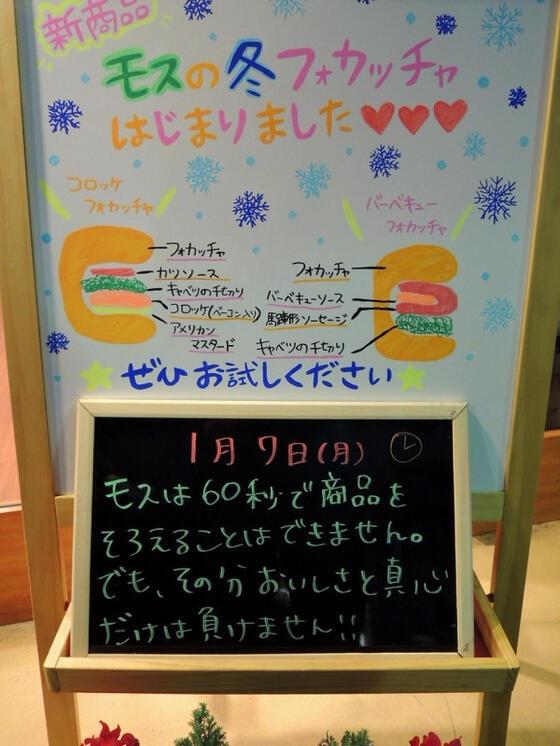 新商品
モスの冬フォカッチャ
はじまりました♥♥♥
コロッケ
フォカッチャ
フォカッチャ
カツソース
キャベツの千切り
コロッケ(ベーコン入り)
アメリカン
マスタード
バーベキュー
フォカッチャ
フォカッチャ
バーベキューソース
馬蹄形ソーセージ
キャベツの千切り
★ぜひお試しください★
1月7日(月)
モスは60秒で商品を
そろえることはできません。
でも、その分おいしさと真心
だけは負けません!!